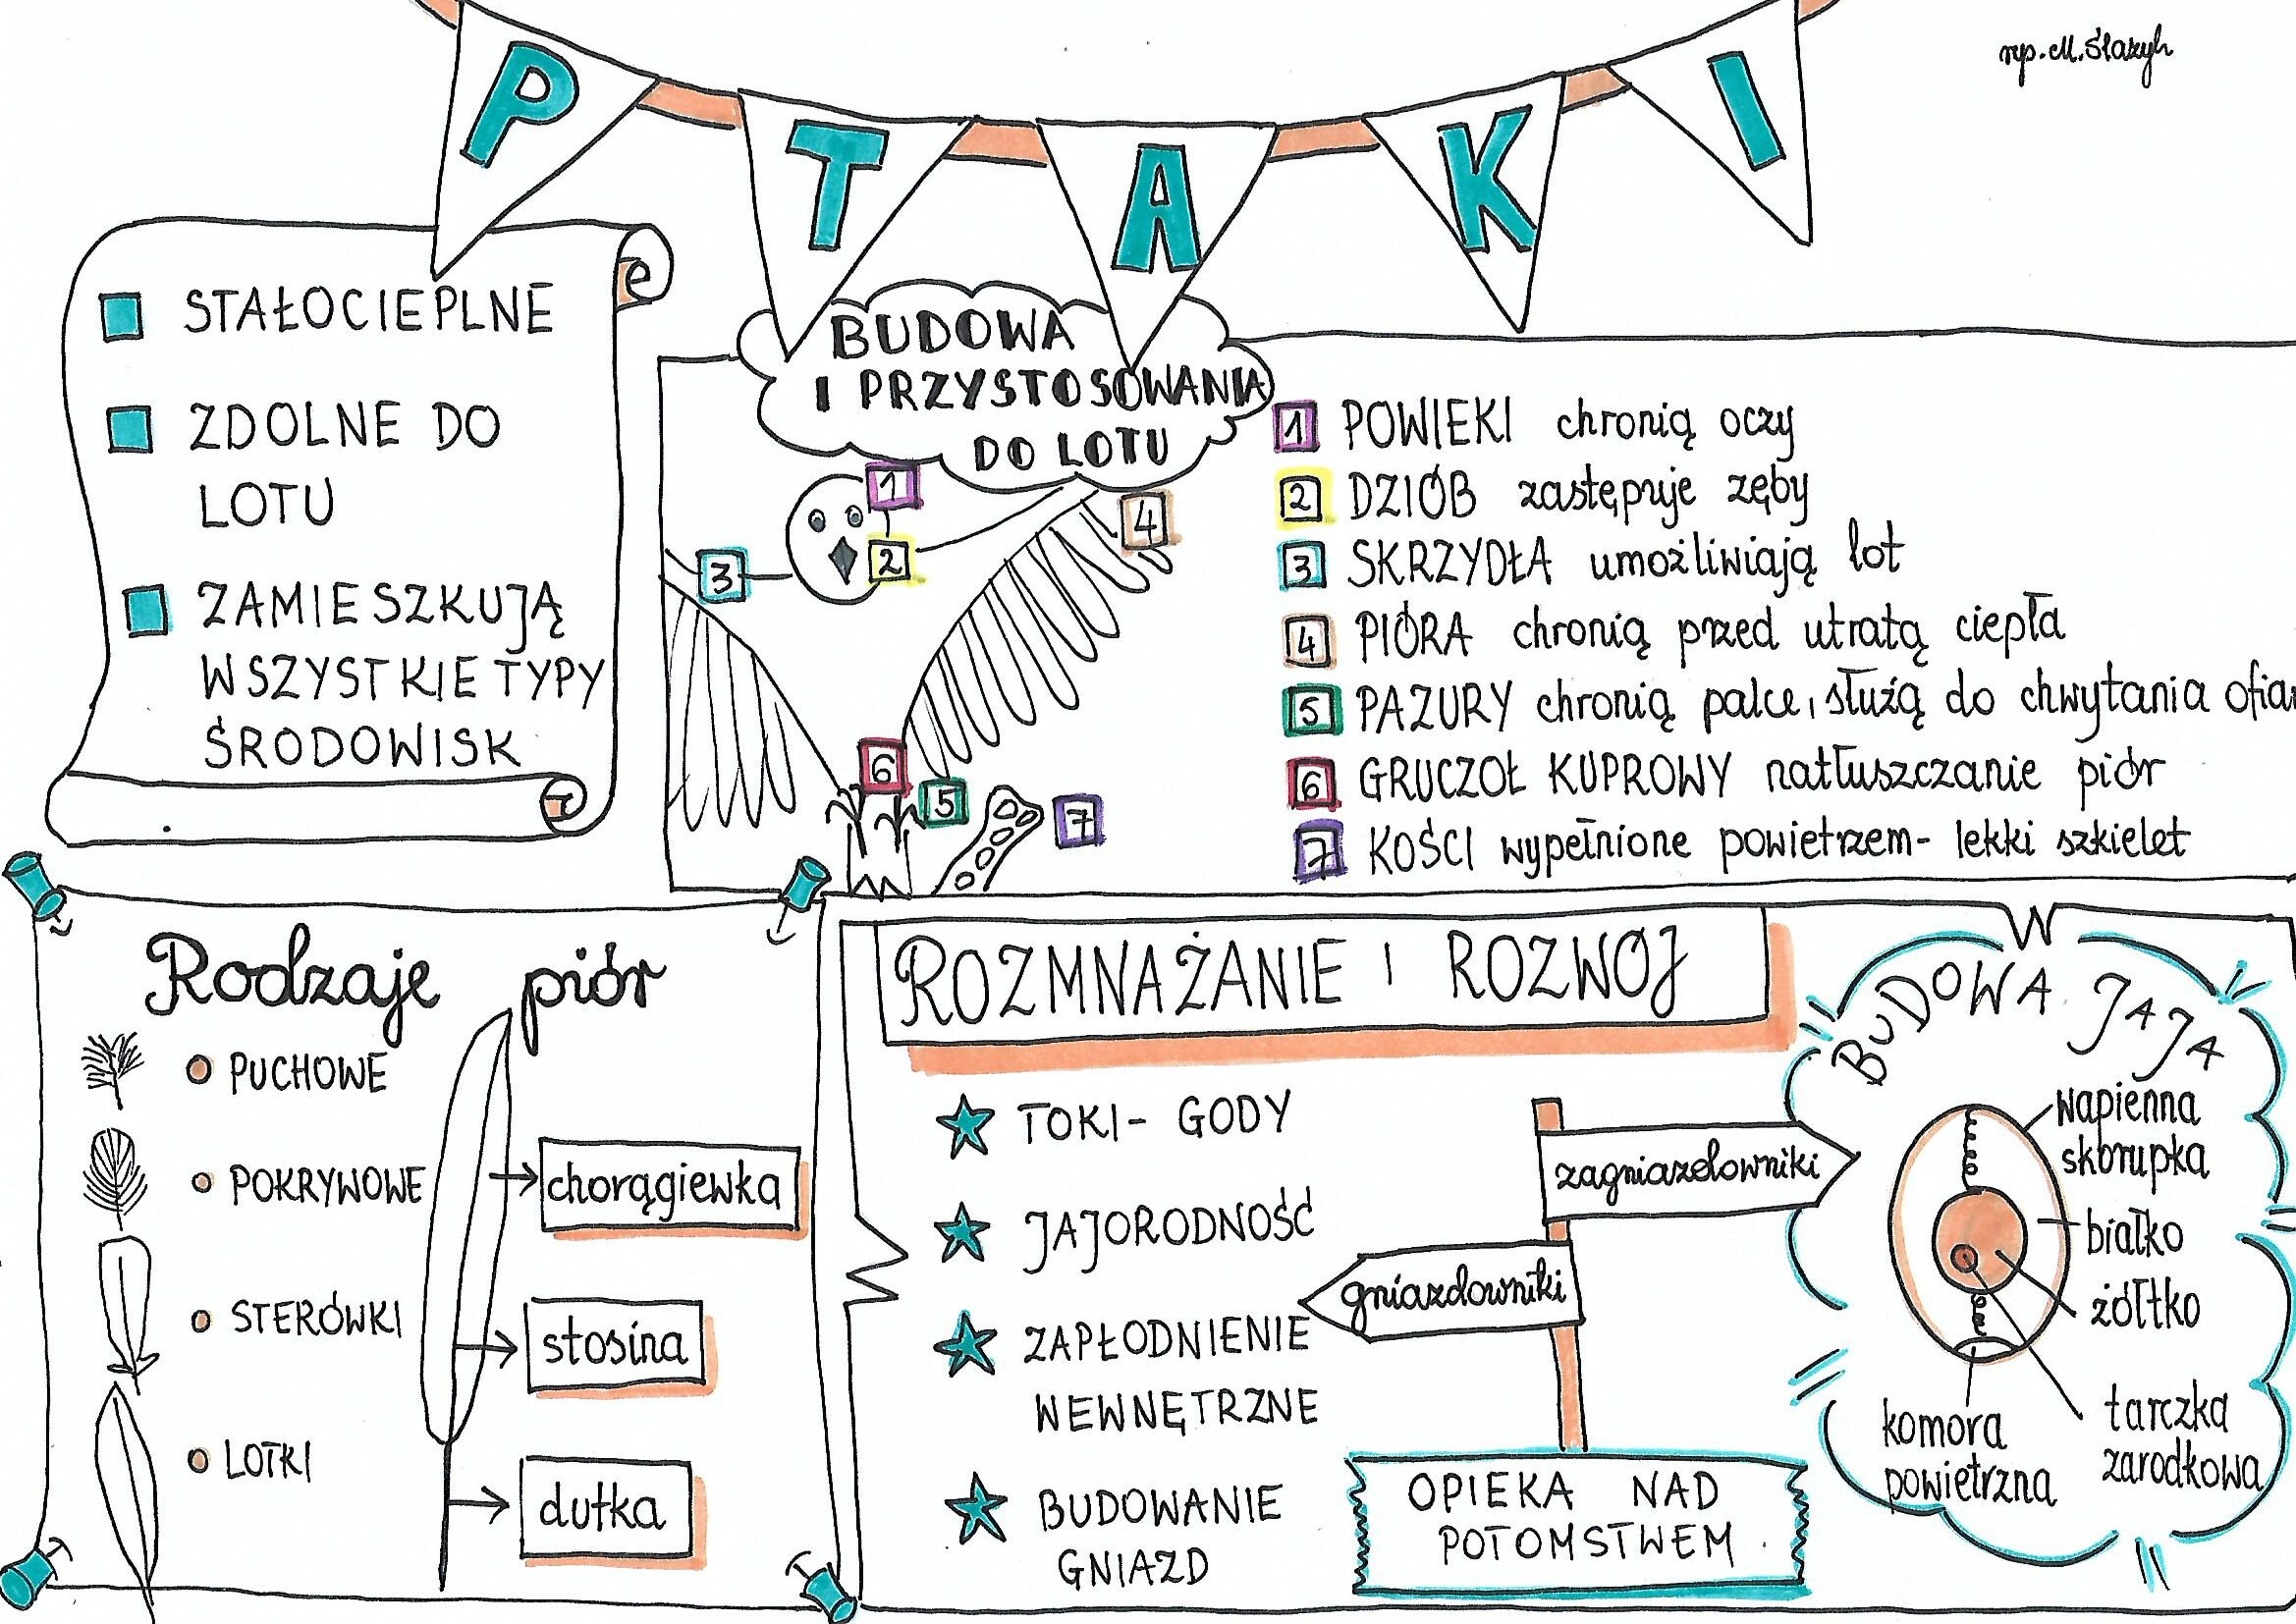 PTAKI
STAŁOCIEPLNE
ZDOLNE DO
LOTU
ZAMIESZKUJĄ
WSZYSTKIE TYPY
ŚRODOWISK
BUDOWA
I PRZYSTOSOWANIA
DO LOTU
1
2
3
4
6
5
7
1 POWIEKI chronią oczy
2 DZIÓB zastępuje zęby
3 SKRZYDŁA umożliwiają lot
4 PIÓRA chronią przed utratą ciepła
5 PAZURY chronią palce, służą do chwytania ofiar
6 GRUCZOŁ KUPROWY natłuszczanie piór
7 KOŚCI wypełnione powietrzem- lekki szkielet
Rodzaje piór
PUCHOWE
POKRYWOWE
STERÓWKI
LOTKI
chorągiewka
stosina
dutka
ROZMNAŻANIE I ROZWÓJ
TOKI- GODY
JAJORODNOŚĆ
ZAPŁODNIENIE
WEWNĘTRZNE
BUDOWANIE
GNIAZD
zagniazdowniki
gniazdowniki
OPIEKA NAD
POTOMSTWEM
BUDOWA JAJA
wapienna
skorupka
białko
żółtko
tarczka
zarodkowa
komora
powietrzna